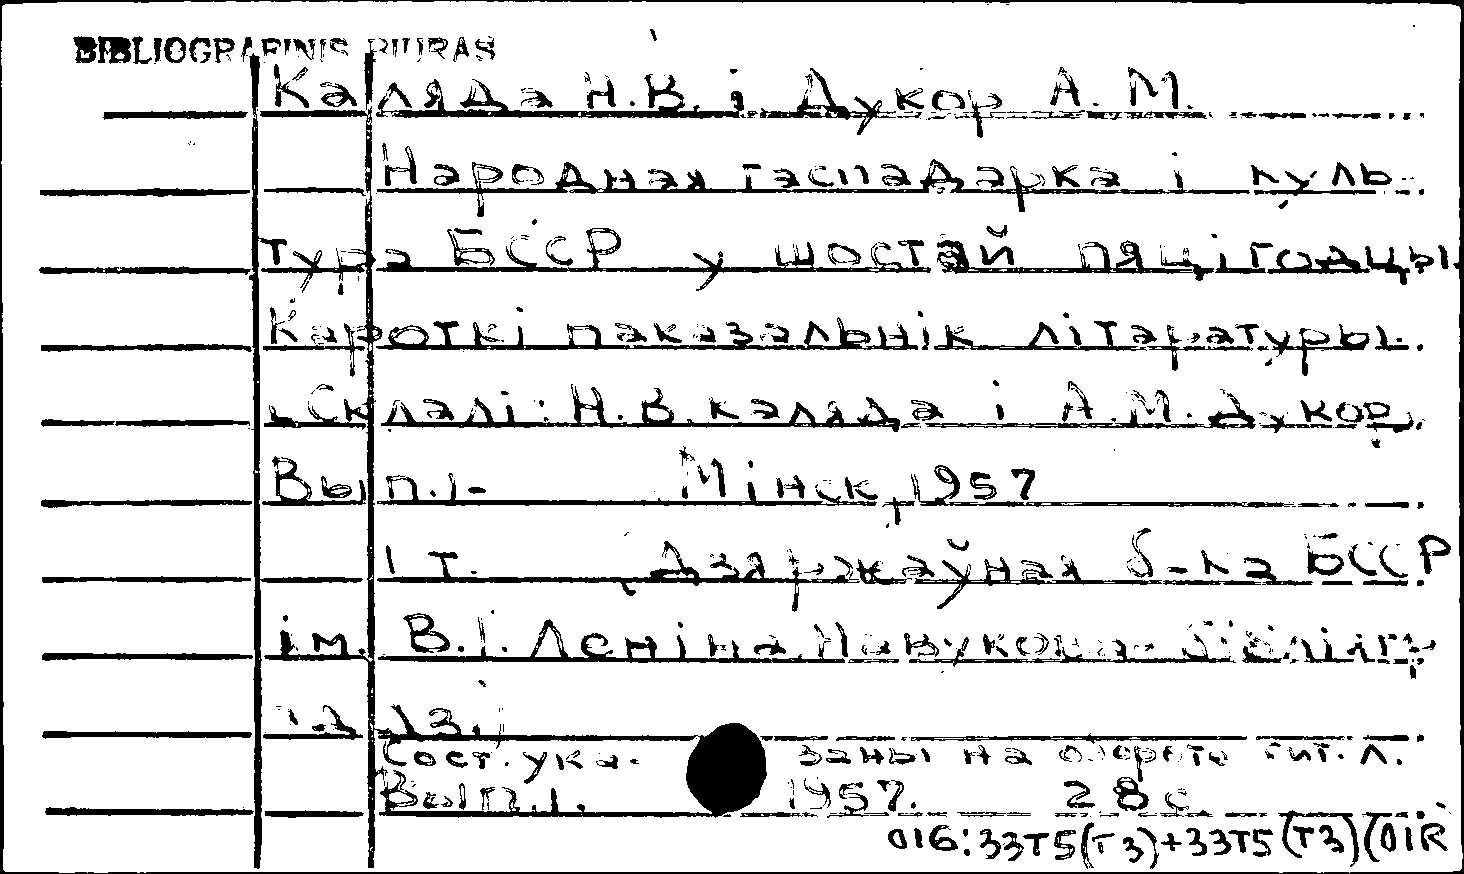 BIBLIOGRAFINIS BIURAS
Каляда Н.В. і Дукор А. М.
Народная гаспадарка і куль-
тура БССР у шостай пяцігодцы.
Кароткі паказальнік літаратуры.
Склалі: Н.В. Каляда і А.М. Дукор.
Вып.1- Мінск, 1957
1 т. Дзяржаўная б-ка БССР
ім. В.І. Леніна. Навукова-
Сост. ука- заны на обороте тит. л.
Вып.1. 1957. 28 с.
016:33T5(T3)+33T5(T3)(01R